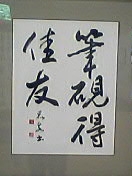 筆硯得
佳友